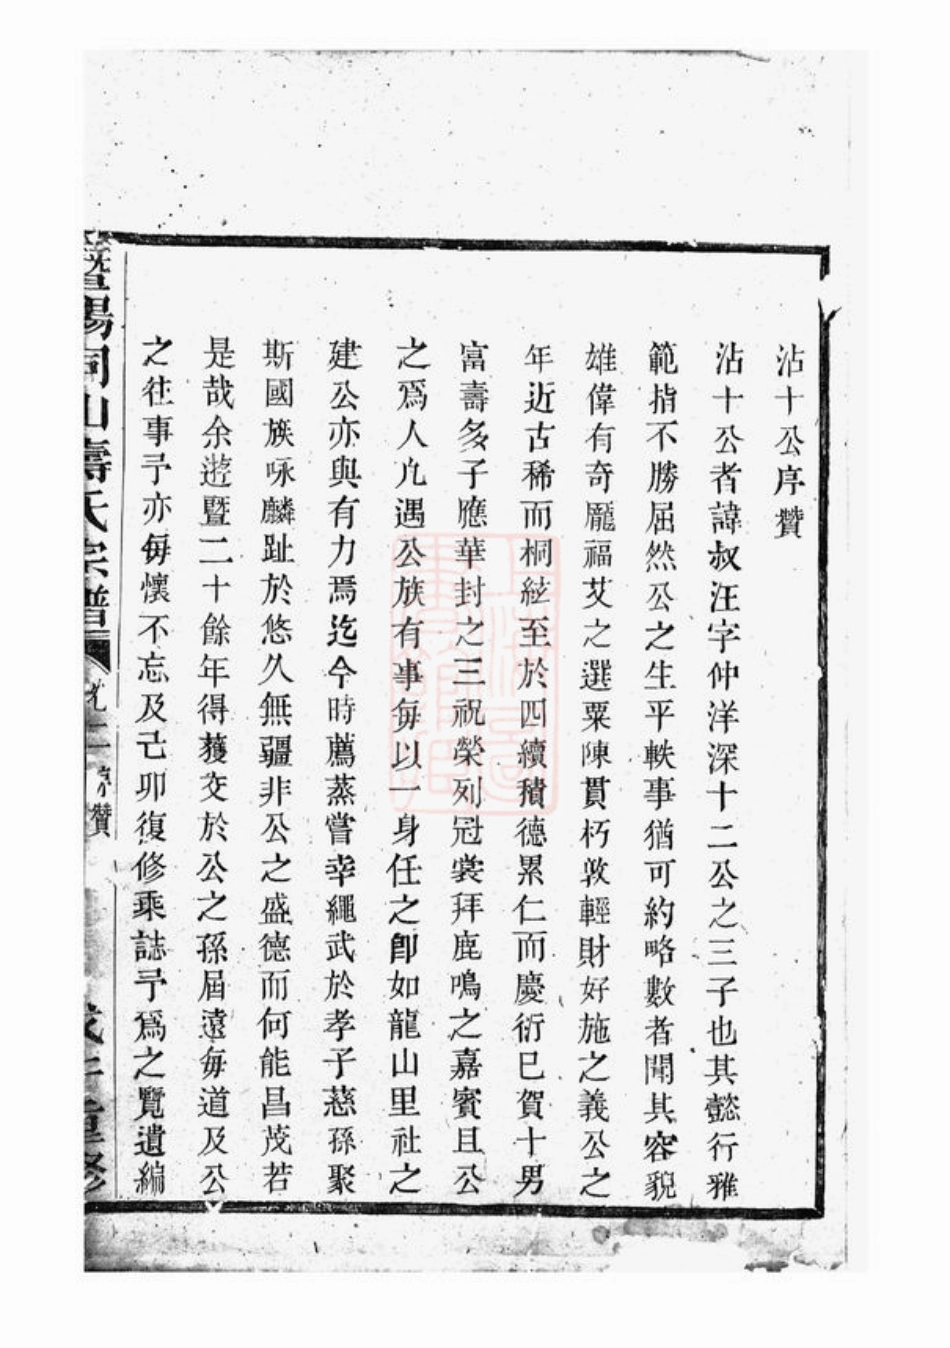 沾十公序贊
沾十公者諱叔汪字仲洋深十二公之三子也其懿行雅
範指不勝屈然公之生平軼事猶可約略數者聞其容貌
雄偉有奇龎福艾之選粟陳貫朽敦輕財好施之義公之
年近古稀而桐絃至於四續積德累仁而慶衍巳賀十男
富壽多子應華封之三祝榮列冠裳拜鹿鳴之嘉賓且公
之爲人凢遇公族有事每以一身任之卽如龍山里社之
建公亦與有力焉迄今時薦蒸嘗幸繩武於孝子慈孫聚
斯國族咏麟趾於悠久無疆非公之盛德而何能昌茂若
是哉余遊暨二十餘年得獲交於公之孫屆遠每道及公
之往事予亦每懷不忘及己卯復修乘誌予爲之覽遺編
暨陽同山壽氏宗譜
序贊
重修